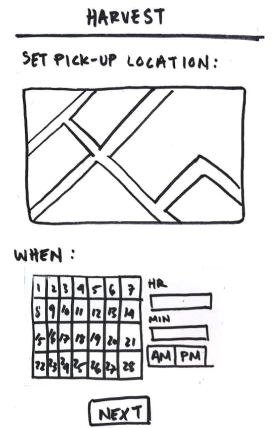 HARVEST
SET PICK-UP LOCATION:
WHEN:
1 2 3 4 5 6 7
8 9 10 11 12 13 14
15 16 17 18 19 20 21
22 23 24 25 26 27 28
HR
MIN
AM PM
NEXT